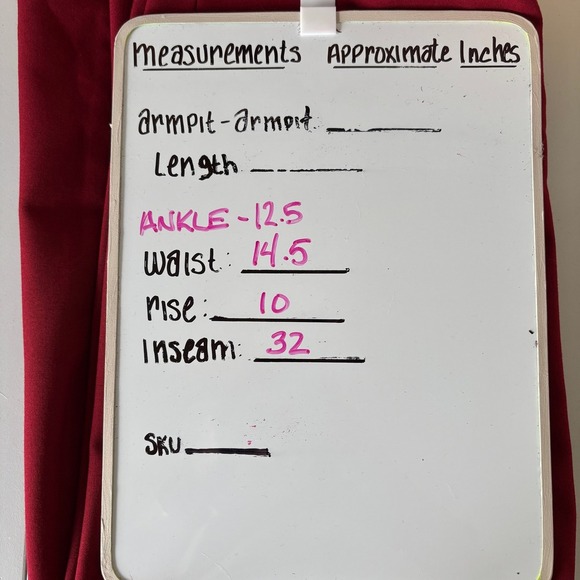 measurements Approximate Inches
armpit-armpit ________
Length ________
ANKLE - 12.5
waist: 14.5
rise: 10
inseam: 32
SKU ______